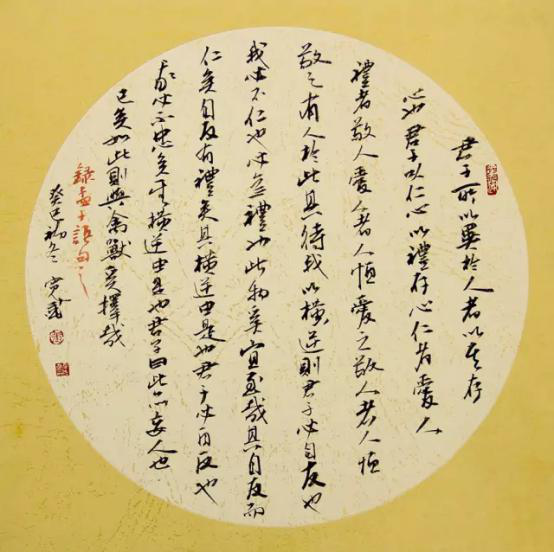 君子所以異於人者以其存
心也君子以仁心以禮存心仁者愛人
禮者敬人愛人者人恒愛之敬人者人恒
敬之有人於此其待我以橫逆則君子必自反也
我必不仁也必無禮也此物奚宜至哉其自反而
仁矣自反有禮矣其橫逆由是也君子必自反也
我必不忠矣其橫逆由是也君子曰此亦妄人也
已矣如此則與禽獸奚擇哉
錄孟子語句
癸巳初冬